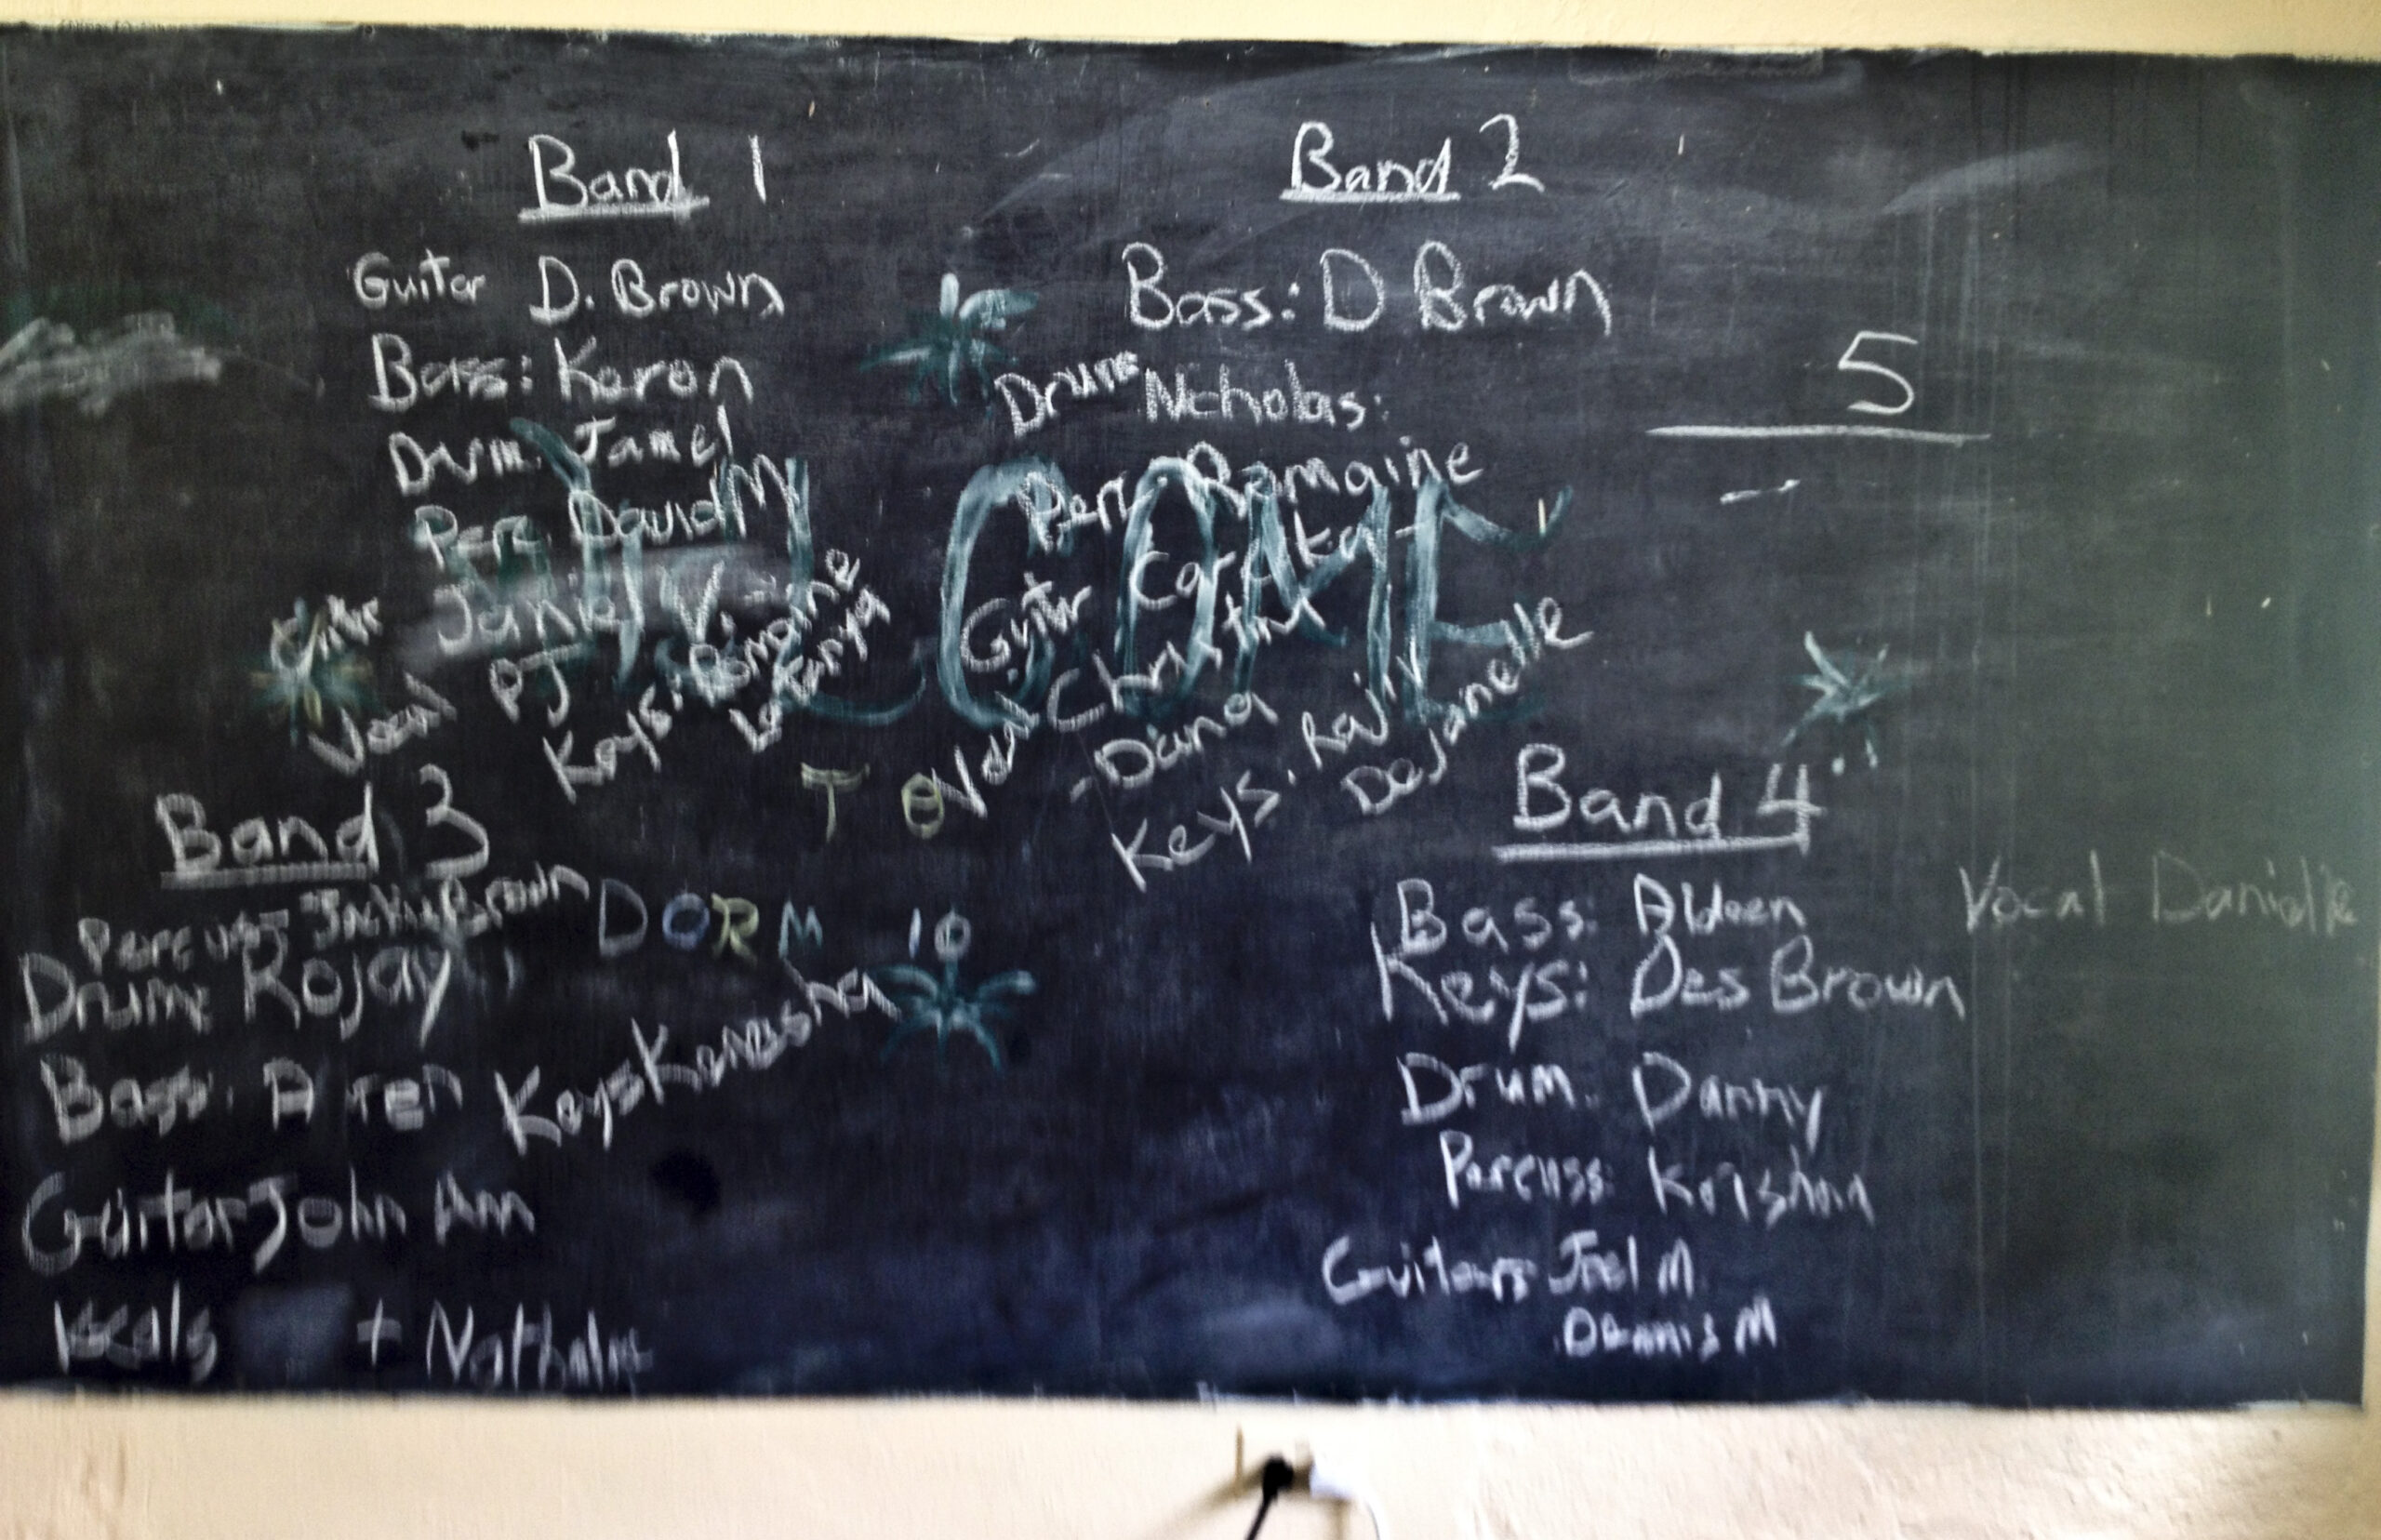 Band 1
Guitar D. Brown
Bass: Karon
Drum Jamel
Perc David M
Guitar Janiel V.
Vocal PJ
Keys: Romaine
LaTanya
Band 2
Bass: D Brown
Drums Nicholas:
Perc Romaine
Guitar
Vocal Christina
- Diana
Keys.
DeJanelle
5
WELCOME
TO
DORM 10
Band 3
Percuss Brown
Drums Rojay
Bass:
Keys
Guitar John Ann
Vocals + Nathalie
Band 4
Bass: Aldeen
Keys: Des Brown
Drum. Danny
Percuss: Krishan
Guitars Joel M
Dennis M
Vocal Danielle